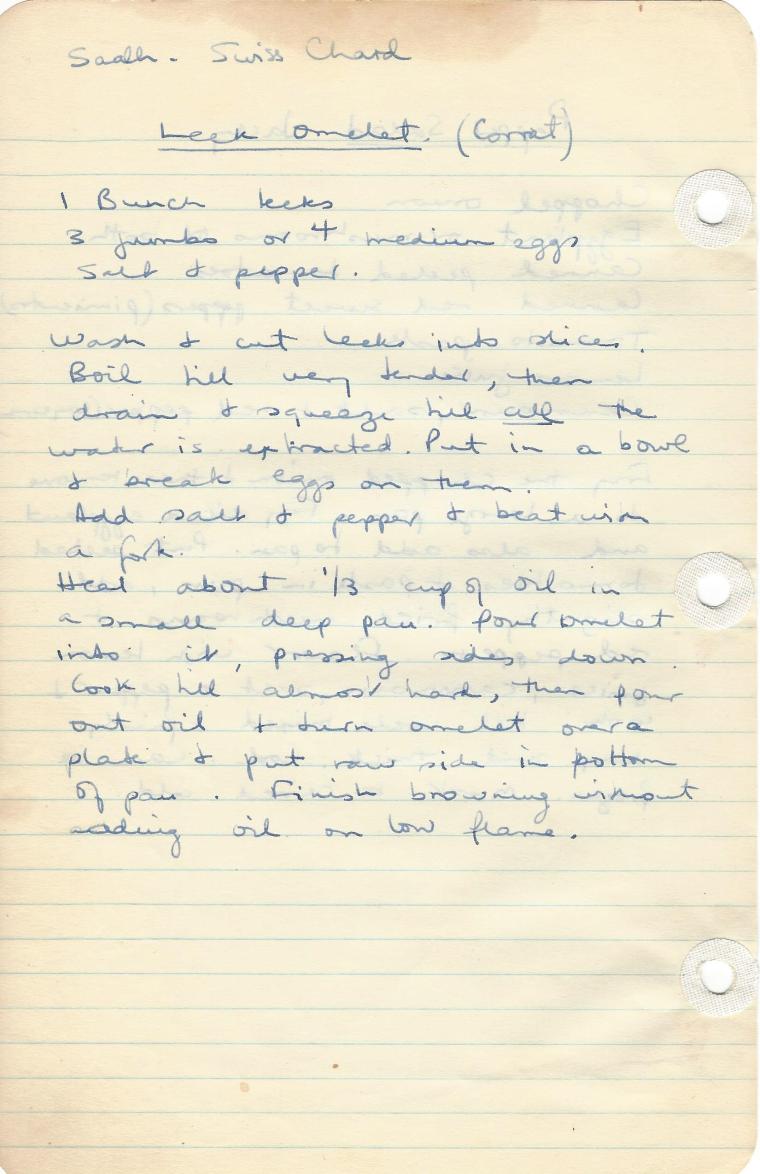 Saath - Swiss Chard
Leek Omelet. (Corrat)
1 Bunch leeks
3 jumbo or 4 medium eggs
Salt & pepper.
Wash & cut leeks into slices.
Boil till very tender, then
drain & squeeze till all the
water is extracted. Put in a bowl
& break eggs on them.
Add salt & pepper & beat with
a fork.
Heat about 1/3 cup of oil in
a small deep pan. Pour omelet
into it, pressing sides down.
Cook till almost hard, then pour
out oil & turn omelet over a
plate & put raw side in bottom
of pan. Finish browning without
adding oil on low flame.